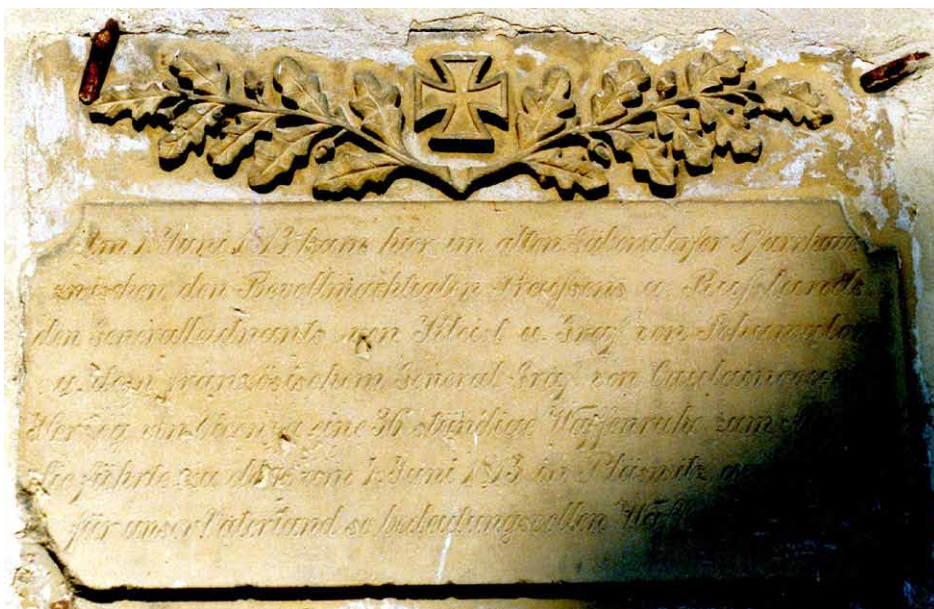 Am 1 Juni 1813 kam hier im alten Gäbersdorfer Pfarrhaus
zwischen den Bevollmächtigten Preussens u. Russlands
den Generalleutnants von Kleist u. Graf von Schuwalow
u. dem französischem General Graf von Caulaincourt
Herzog von Vicenza eine 36 stündige Waffenruhe zum
Sie führte zu dem am Juni 1813 in Pläswitz
für unser Vaterland so bedeutungsvollen